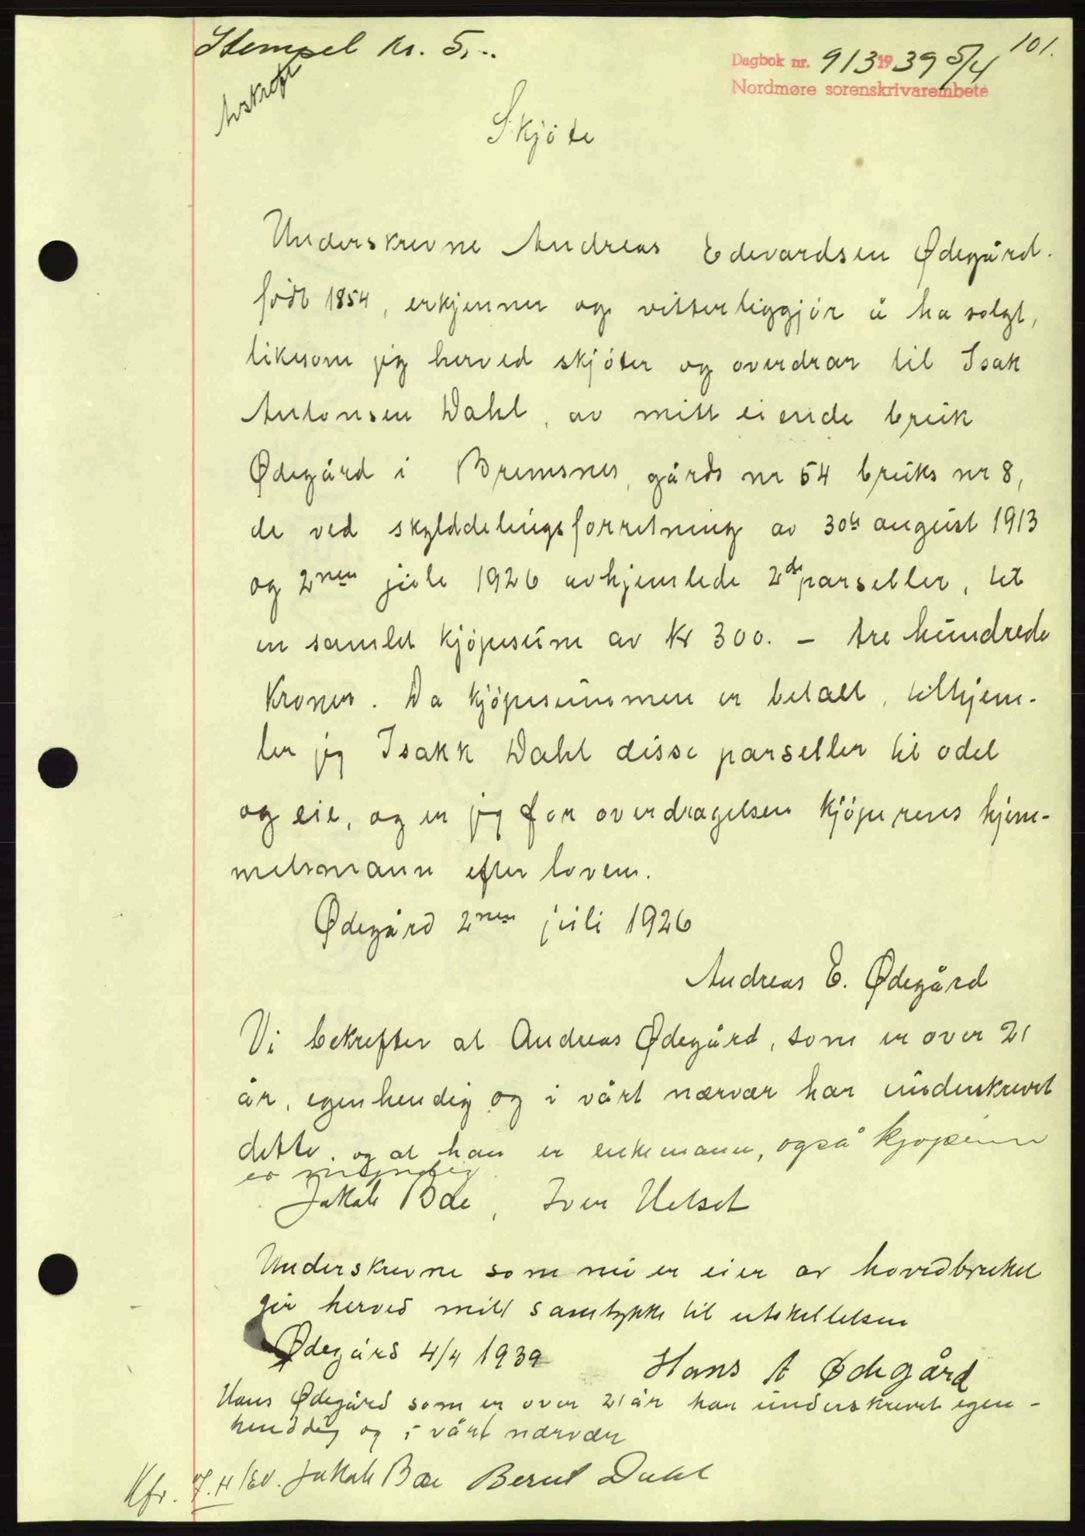 Stempel kr. 5,-.
Avskrift
Dagbok nr. 913 1939 5/4 101.
Nordmøre sorenskrivarembete
Skjöte
Underskrevne Andreas Edevardsen Ødegård.
född 1854, erkjenner og vitterliggjör å ha solgt,
likesom jeg herved skjöter og overdrar til Isak
Antonsen Dahl, av mitt eiende bruk
Ødegård i Bremsnes, gårds nr 54 bruks nr 8,
de ved skylddelingsforretning av 30te august 1913
og 2nen juli 1926 avhjemlede 2de parseller, for
en samlet kjöpesum av kr 300. - tre hundrede
kroner. Da kjöpesummen er betalt, tilhjem-
ler jeg Isakk Dahl disse parseller til odel
og eie, og er jeg for overdragelsen kjöperens hjem-
melsmann efter loven.
Ødegård 2nen juli 1926
Andreas E. Ødegård
Vi bekrefter at Andreas Ødegård, som er over 21
år, egenhendig og i vårt nærvær har underskrevet
dette. og at han er enkemann, også kjøperen
er myndig.
Jakob Bøe, Iver Helset
Underskrevne som nu er eier av hovedbruket
gir herved mitt samtykke til utskillelsen
Ødegård 4/4 1939
Hans A Ødegård
Hans Ødegård som er over 21 år har underskrevet egen-
henddig og i vårt nærvær
Jakob Bøe Bernt Dahl
Kfr.